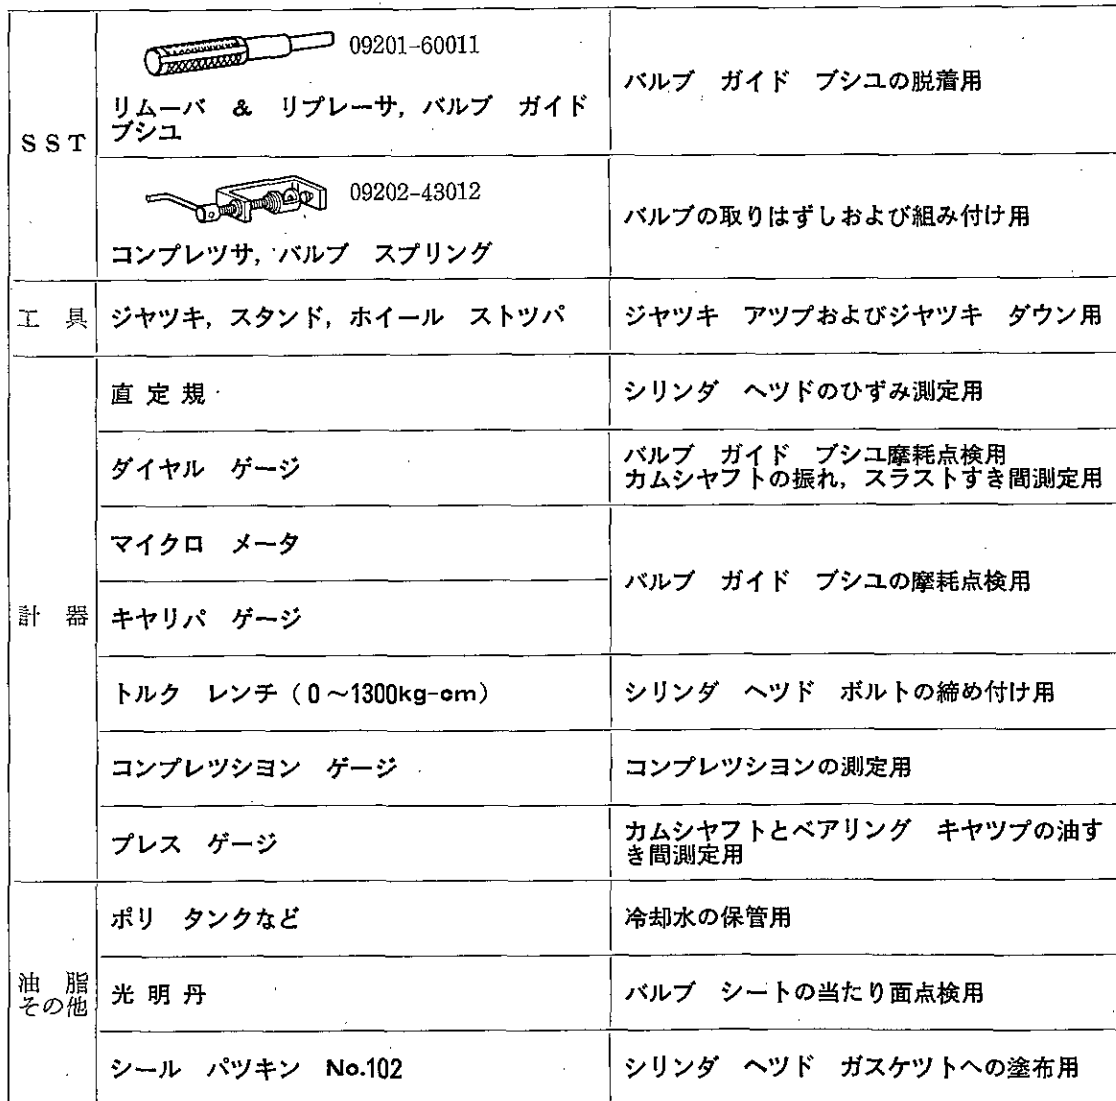 SST
09201-60011
リムーバ & リプレーサ, バルブ ガイド
ブシユ
バルブ ガイド ブシユの脱着用
09202-43012
コンプレツサ, バルブ スプリング
バルブの取りはずしおよび組み付け用
工 具
ジヤツキ, スタンド, ホイール ストツパ
ジヤツキ アツプおよびジヤツキ ダウン用
計 器
直 定 規
シリンダ ヘツドのひずみ測定用
ダイヤル ゲージ
バルブ ガイド ブシユ摩耗点検用
カムシヤフトの振れ, スラストすき間測定用
マイクロ メータ
キヤリパ ゲージ
バルブ ガイド ブシユの摩耗点検用
トルク レンチ(0~1300kg-cm)
シリンダ ヘツド ボルトの締め付け用
コンプレツシヨン ゲージ
コンプレツシヨンの測定用
プレス ゲージ
カムシヤフトとベアリング キヤツプの油す
き間測定用
油 脂
その他
ポリ タンクなど
冷却水の保管用
光 明 丹
バルブ シートの当たり面点検用
シール パツキン No.102
シリンダ ヘツド ガスケツトへの塗布用